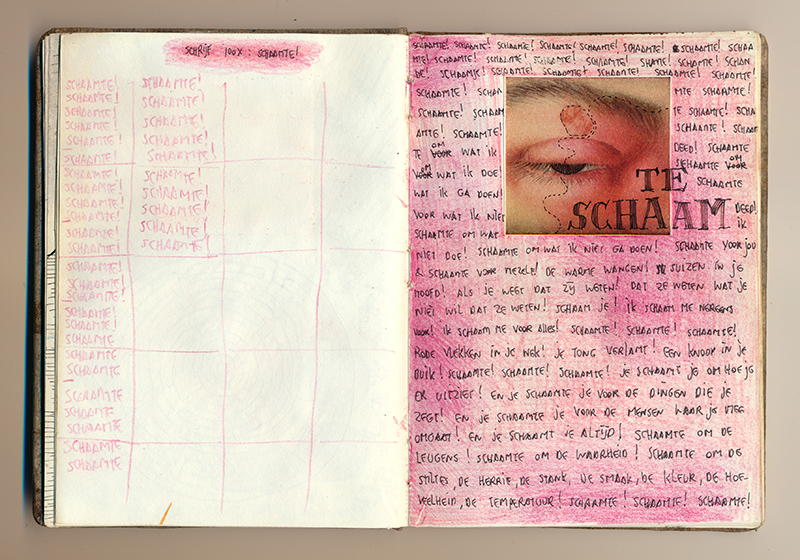 SCHRIJF 100X: SCHAAMTE!
SCHAAMTE! SCHAAMTE!
SCHAAMTE! SCHAAMTE!
SCHAAMTE! SCHAAMTE!
SCHAAMTE! SCHAAMTE!
SCHAAMTE! SCHAAMTE!
SCHAAMTE! SCHAAMTE!
SCHAAMTE! SCHAAMTE!
SCHAAMTE! SCHAAMTE!
SCHAAMTE! SCHAAMTE!
SCHAAMTE! SCHAAMTE!
SCHAAMTE! SCHAAMTE!
SCHAAMTE!
SCHAAMTE!
SCHAAMTE!
SCHAAMTE!
SCHAAMTE!
SCHAAMTE!
SCHAAMTE
SCHAAMTE
SCHAAMTE
SCHAAMTE
SCHAAMTE
SCHAAMTE
SCHAAMTE
SCHAAMTE
SCHAAMTE! SCHAAMTE! SCHAAMTE! SCHAAMTE! SCHAAMTE! SCHAAMTE! SCHAAMTE! SCHAA
MTE! SCHAAMTE! SCHAAMTE! SCHAAMTE! SCHAAMTE! SCHAAMTE! SCHAAMTE! SCHAAM
SCHAAMTE! SCHAAMTE! SCHAAMTE! SCHAAMTE! SCHAAMTE!
SCHAAMTE! SCHAA MTE SCHAAMTE!
SCHAAMTE! SCHAAM TE SCHAAMTE!
AMTE! SCHAAMTE! SCHAAMTE! SCHAAMT
TE OM WAT IK DEED! SCHAAMTE
OM WAT IK DOE! SCHAAMTE OM
WAT IK GA DOEN! SCHAAMTE
VOOR WAT IK NIET DEED!
SCHAAMTE OM WAT IK
TE
SCHAAM
NIET DOE! SCHAAMTE OM WAT IK NIET GA DOEN! SCHAAMTE VOOR JOU
& SCHAAMTE VOOR MEZELF! DE WARME WANGEN! SUIZEN IN JE
HOOFD! ALS JE WEET DAT ZIJ WETEN! DAT ZE WETEN WAT JE
NIET WIL DAT ZE WETEN! SCHAAM JE! IK SCHAAM ME NERGENS
VOOR! IK SCHAAM ME VOOR ALLES! SCHAAMTE! SCHAAMTE! SCHAAMTE!
RODE VLEKKEN IN JE NEK! JE TONG VERLAMT! EEN KNOOP IN JE
BUIK! SCHAAMTE! SCHAAMTE! SCHAAMTE! JE SCHAAMT JE OM HOE JE
ER UITZIET! EN JE SCHAAMTE JE VOOR DE DINGEN DIE JE
ZEGT! EN JE SCHAAMTE JE VOOR DE MENSEN WAAR JE MEE
OMGAAT! EN JE SCHAAMT JE ALTIJD! SCHAAMTE OM DE
LEUGENS! SCHAAMTE OM DE WAARHEID! SCHAAMTE OM DE
STILTES, DE HERRIE, DE STANK, DE SMAAK, DE KLEUR, DE HOE-
VEELHEID, DE TEMPERATUUR! SCHAAMTE! SCHAAMTE! SCHAAMTE!